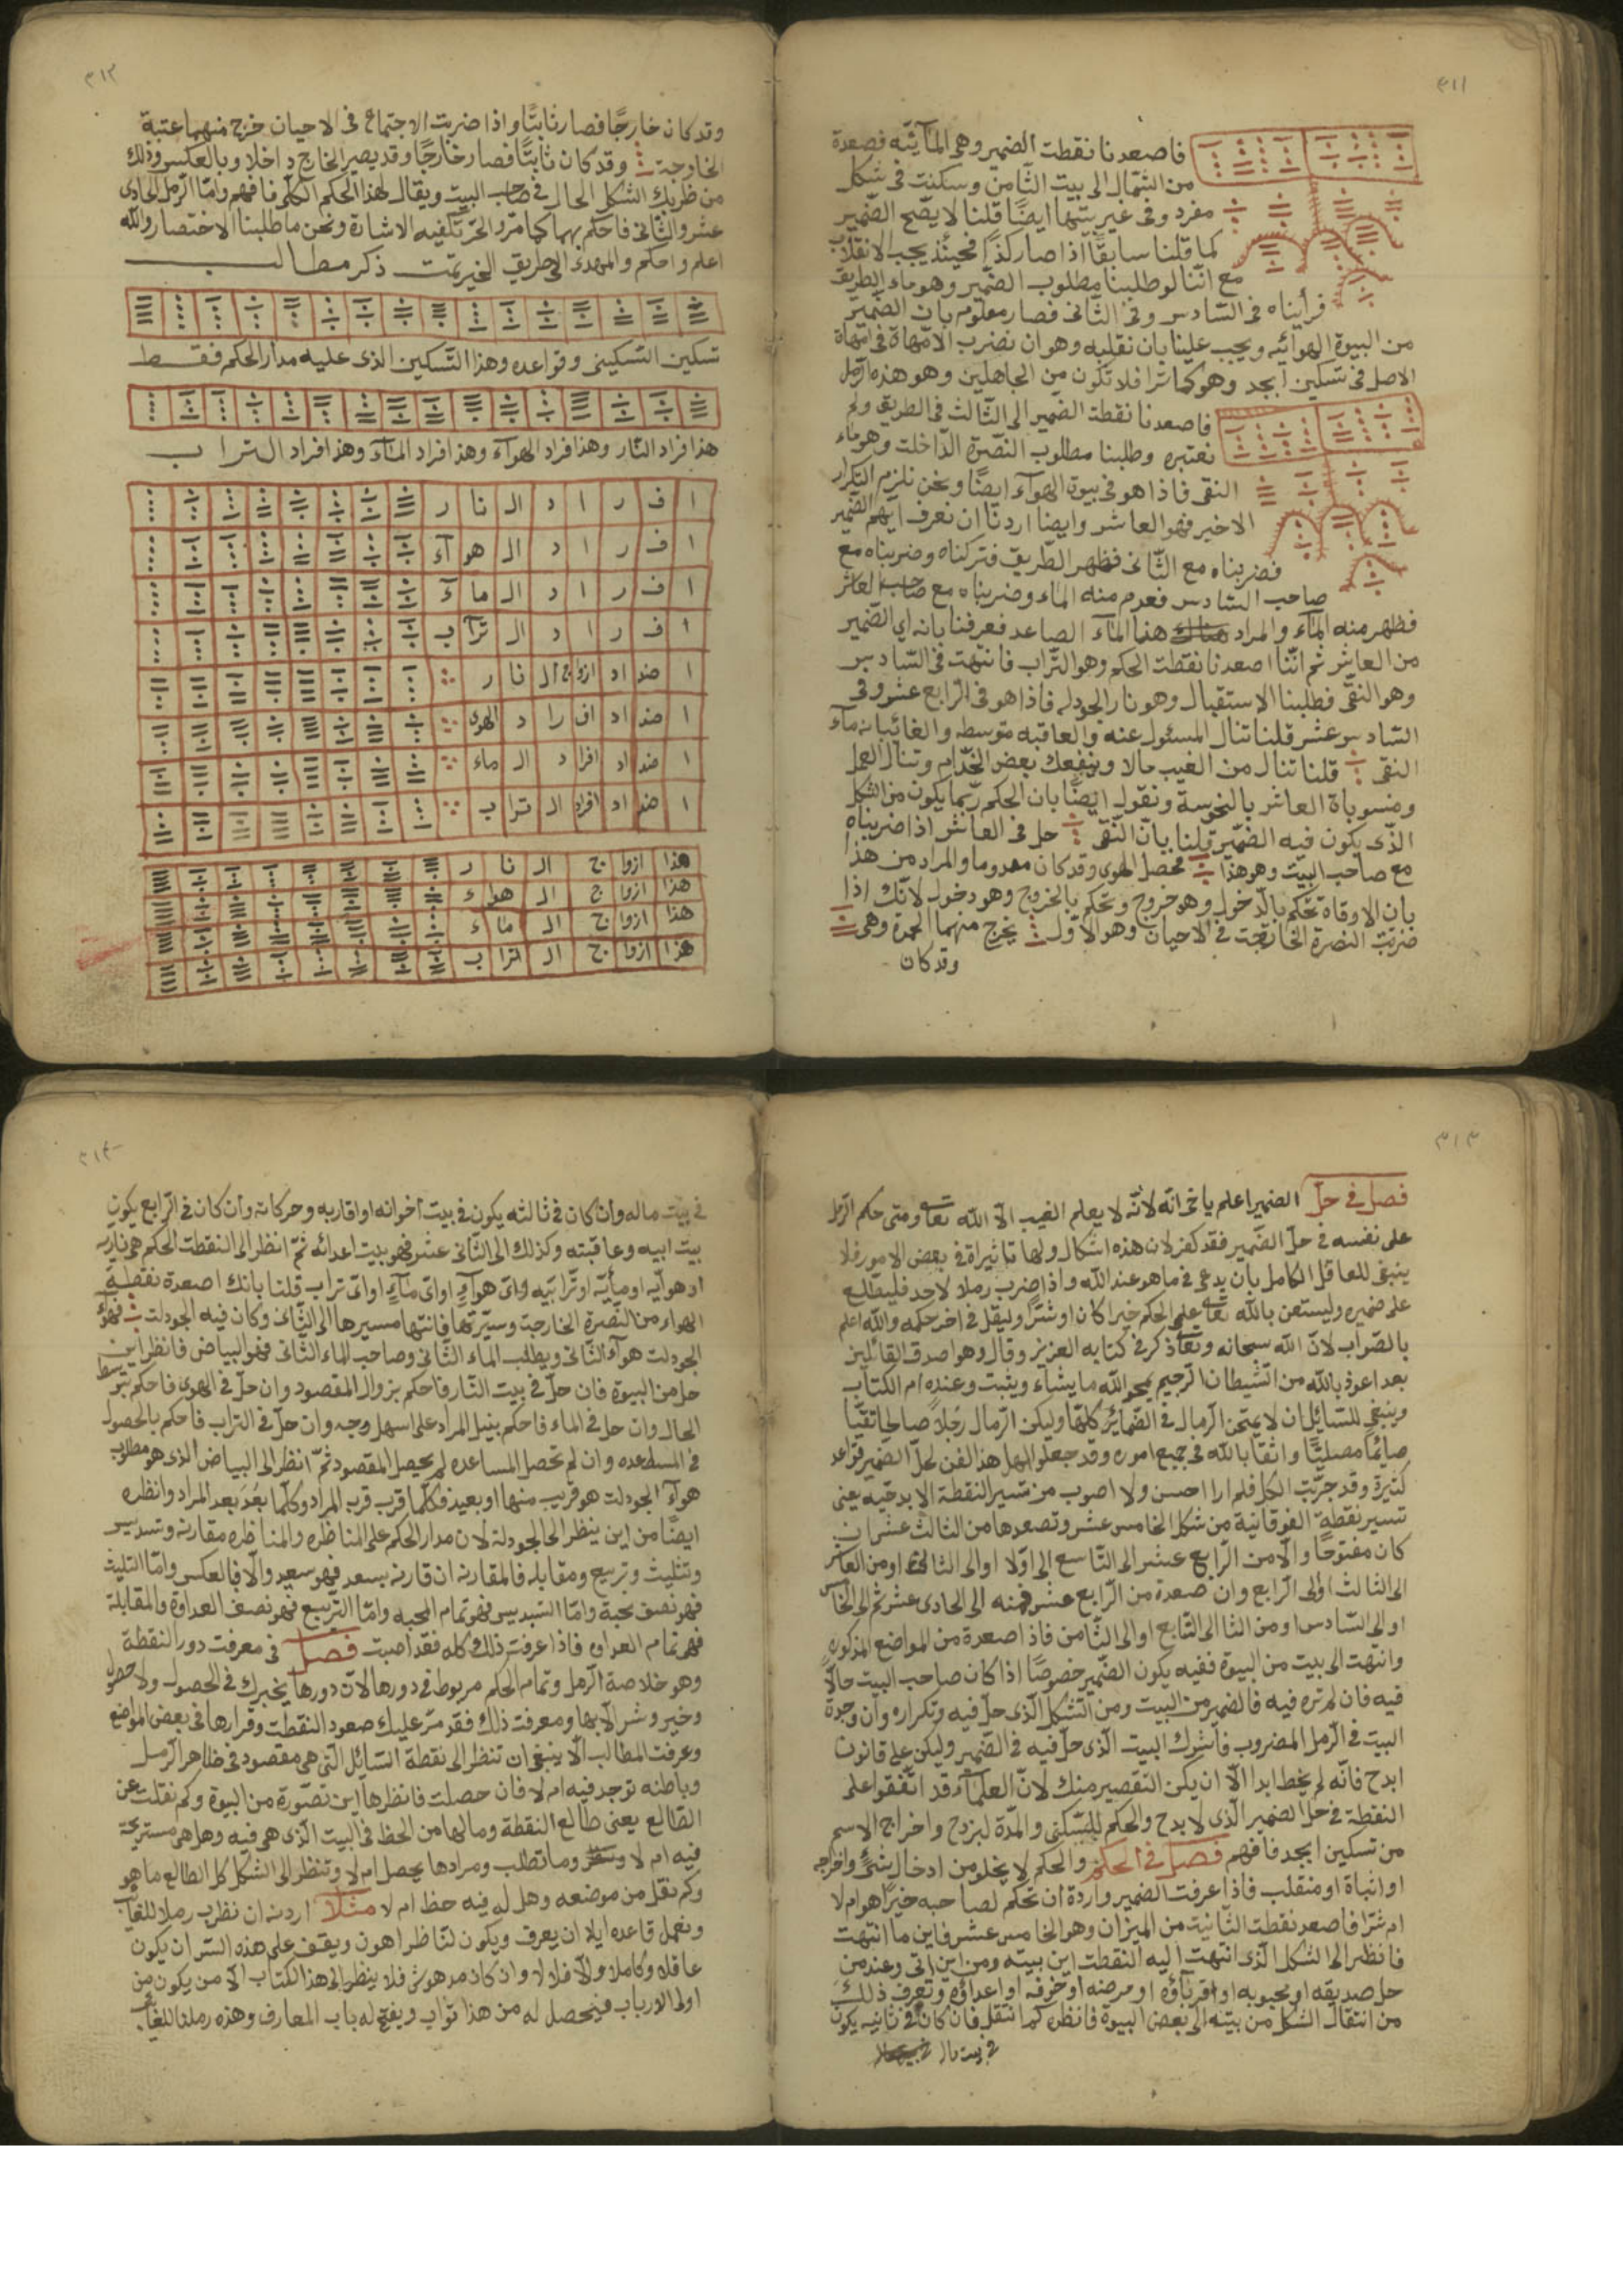 ٣١١
فاصعدنا نقطت الضمير وهى المآئيّه فصعدة
من الشمال الى بيت الثّامن وسكنت فى شكل
مفرد وفى غير بيتها ايضًا قلنا لا يصّح الضّمير
كما قلنا سابقًا اذا صار كذا فحينئذ يجب الانقلاب
مع انّنا لو طلبنا مطلوب الضّمير وهو ماء الطريق
فرأيناه فى السّادس وفى الثّانى فصار معلوم بان الضّمير
من البيوة الهوائيه ويجب علينا بان نقلبه وهو ان نضرب الامّهاة فى امّهاة
الاصل فى تسكين ابجد وهو كما ترا فلا تكون من الجاهلين وهو هذه الرّمل
فاصعدنا نقطة الضّمير الى الثّالث فى الطريق ولم
نعتبره وطلبنا مطلوب النّصرة الدّاخلت وهو ماء
النقى فاذا هو فى بيوة الهوآء ايضًا ونحن نلزم التكرار
الاخير فهو العاشر وايضا اردنا ان نعرف ايّهم الضّمير
فضربناه مع الثّانى فظهر الطّريق فتركناه وضربناه مع
صاحب السّادس فعدم منه الماء وضربناه مع صاحب العاشر
فظهر منه المآء والمراد هذا المآء الصاعد فعرفنا بانه اي الضّمير
من العاشر ثم انّنا اصعدنا نقطت الحكم وهو التّراب فانتهت فى السّادس
وهو النقّى فطلبنا الاستقبال وهو نار الجودله فاذا هو فى الرّابع عشر وفى
السّادس عشر قلنا تنال المسئول عنه والعاقبه متوسطه والغائب بانه مآء
النقى قلنا تنال من الغيب مالا وينفعك بعض الخدّام وتنال العمل
ومنسوباة العاشر بالنحوسة ونقول ايضًا بان الحكم ربّما يكون من الشّكل
الذّى يكون فيه الضّمير قلنا بانّ النّقى حل فى العاشر اذا ضربناه
مع صاحب البيت وهو هذا محصل الهوى وقد كان معدوما والمراد من هذا
بان الاوقاة تحكم بالدّخول وهو خروج وتحكم بالخروج وهو دخول لانّك اذا
ضربت النصرة الخارجت فى الاحيان وهو الاوّل يخرج منهما الحمرة وهى
وقد كان
٣١٢
وقد كان خارجًا فصار ثابتًا واذا ضربت الاجتماع فى الاحيان خرج منهما عتبة
الخارجت وقد كان ثابتًا فصار خارجًا وقد يصير الخارج داخلا وبالعكس وذلك
من ضربك الشكل الحال فى صاحب البيت ويقال لهذا الحكم الكلّى فافهم وامّا الرّمل الحادى
عشر والثّانى فاحكم بهما كما مرّ والحرّ تكفيه الاشارة ونحن ما طلبنا الاختصار واللّه
اعلم واحكم والمهدى الى طريق الخير تمّت ذكر مطالب
تسكين التسكينى وقواعده وهذا التّسكين الذى عليه مدار الحكم فقط
هذا فراد النّار وهذا فراد الهوآء وهذا فراد المآء وهذا فراد التراب
ا ف ر ا د الـ نا ر
ا ف ر ا د الـ هو آء
ا ف ر ا د الـ ما ء
ا ف ر ا د الـ ترآ ب
ا ضد اد ازواج الـ نا ر
ا ضد اد اف را د الهوى
ا ضد اد افرا د الـ ماء
ا ضد اد افراد الـ ترا ب
هذا ازوا ج الـ نا ر
هذا ازوا ج الـ هوا ء
هذا ازوا ج الـ ما ء
هذا ازوا ج الـ ترا ب
٣١٣
فصل فى حلّ الضمير اعلم يا اخى انّه لانّه لا يعلم الغيب الّا اللّه تعالى ومتى حكم الرّمل
على نفسه فى حلّ الضّمير فقد كفر لان هذه اشكال ولها تاثيراة فى بعض الامور فلا
ينبغى للعاقل الكامل بان يدعى فى ما هو عند اللّه واذا ضرب رملا لاحد فليطّلع
على ضميره وليستعن باللّه تعالى على الحكم خيرا كان او شرًّا وليقل فى اخر حكمه واللّه اعلم
بالصّواب لانّ اللّه سبحانه وتعالى ذكر فى كتابه العزيز وقال وهو اصدق القائلين
بعد اعوذ باللّه من الشّيطان الرّجيم يمحو اللّه ما يشاء ويثبت وعنده ام الكتاب
وينبغى للسّائل ان لا يمتحن الرّمال فى الضّمائر كلّها وليكن الرّمال رجلا صالحا تقيًّا
صائمًا مصليًّا واثقًا باللّه فى جميع اموره وقد جعلوا اهل هذا الفن لحلّ الضّمير قواعد
كثيرة وقد جرّبت الكل فلم ارا احسن ولا اصوب من تسير النقطة الابدحيه يعنى
تسير نقطة الفوقانية من شكل الخامس عشر وتصعدها من الثالث عشر ان
كان مفتوحًا والّا من الرّابع عشر الى التّاسع الى اوّلا او الى الثانى او من العاشر
الى الثالث او الى الرّابع وان صعدة من الرّابع عشر فمنه الى الحادى عشر ثم الى الخامس
او الى السّادس او من الثا الى السّابع او الى الثّامن فاذا صعدة من المواضع المذكوره
وانتهت الى بيت من البيوة ففيه يكون الضّمير خصوصًا اذا كان صاحب البيت حالّا
فيه فان لم تره فيه فالضمير من البيت ومن الشّكل الّذى حلّ فيه وتكراره وان وجدة
البيت فى الرّمل المضروب فاشرك البيت الّذى حلّ فيه فى الضّمير وليكن على قانون
ابدح فانّه لم يخط ابدا الّا ان يكن التّقصير منك لانّ العلمآء قد اتّفقوا على
النقطة فى حل الضمير الّذى لابدح والحكم للتّسكنى والمدّة لبزدح واخراج الاسم
من تسكين ابجد فافهم فصل فى الحكم والحكم لا يخلو من ادخال شئ واخراجه
او اثباة او منقلب فاذا عرفت الضمير واردة ان تحكم لصاحبه خيرًا هو ام لا
ام شرّا فاصعد نقطت الثّانيت من الميزان وهو الخامس عشر فاين ما انتهت
فانظر الى الشكل الّذى انتهت اليه النقطت اين بيته ومن اين اتى وعند من
حل صديقه او محبوبه او اقربآؤه او مرضه او خوفه او اعداؤه وتعرف ذلك
من انتقال الشكل من بيته الى بعض البيوة فانظره كم انتقل فان كان فى ثانيه يكون
فى بيت مال
٣١٤
فى بيت ماله وان كان فى ثالثه يكون فى بيت اخوانه او اقاربه وحركاته وان كان فى الرّابع يكون
بيت ابيه وعاقبته وكذلك الى الثّانى عشر فهو بيت اعدائه ثمّ انظر الى النقطت الحكم هى ناريه
او هوآيه او مأيّه او ترّابيّه واىّ هوآءٍ او اىّ مآءٍ او اىّ تراب قلنا بانك اصعدة نقطة
الهواء من النّصرة الخارجت وسيّرتها فانتها مسيرها الى الثّانى وكان فيه الجودلت فهوآء
الجودلت هوآء الثّانى ويطلب الماء الثّانى وصاحب الماء الثّانى فهو البياض فانظر اين
حل من البيوة فان حلّ فى بيت النّار فاحكم بزوال المقصود وان حلّ فى الهوى فاحكم بتوسّط
الحال وان حل فى الماء فاحكم بنيل المراد على اسهل وجه وان حلّ فى التراب فاحكم بالحصول
فى المساعده وان لم تحصل المساعده لم يحصل المقصود ثمّ انظر الى البياض الذى هو مطلوب
هوآء الجودلت هو قريب منها او بعيد فكلّما قرب قرب المراد وكلّما بعُدَ بعد المراد وانظره
ايضًا من اين ينظر الى الجودلة لان مدار الحكم على المناظره والمناظره مقارنه وتسديس
وتثليث وتربيع ومقابله فالمقارنه ان قارنه بسعد فهو سعيد والّا فالعكس وامّا التليث
فهو نصف محبة وامّا التّسديس فهو تمام المحبه وامّا التّربيع فهو نصف العداوة والمقابلة
فهى تمام العداوه فاذا عرفت ذلك كله فقد اصبت فصل فى معرفت دور النقطة
وهو خلاصة الرّمل وتمام الحكم مربوط فى دورها لانّ دورها يخبرك فى الحصول ولا حصول
وخير وشر الّا بها ومعرفت ذلك فقد مرّ عليك صعود النقطت وقرارها فى بعض المواضع
وعرفت المطالب الّا ينبغى ان تنظر الى نقطة السّائل الّتى هى مقصود فى ظاهر الرّمل
وباطنه توجد فيه ام لا فان حصلت فانظرها اين تصّورة من البيوة وكم نقلت عن
الطّالع يعنى طالع النقطة وما لها من الحظ فى البيت الّذى هى فيه وهل هى مستريحة
فيه ام لا وما تطلب ومرادها يحصل ام لا وتنظر الى الشكل كل الطالع ما هو
وكم نقل من موضعه وهل له فيه حظ ام لا مثلا اردنه ان نظرب رملا للغيّاب
ونعمل قاعده ايلا ان يعرف ويكون لنّاظر اهون ويقف على هذه السّر ان يكون
عاقلا وكاملا والّا فلا لا وان كان مدهوش فلا ينظر الى هذا الكتاب الّا من يكون من
اولى الارباب فيحصل له من هذا ثواب ويفتح له باب المعارف وهذه رملنا للغيّاب